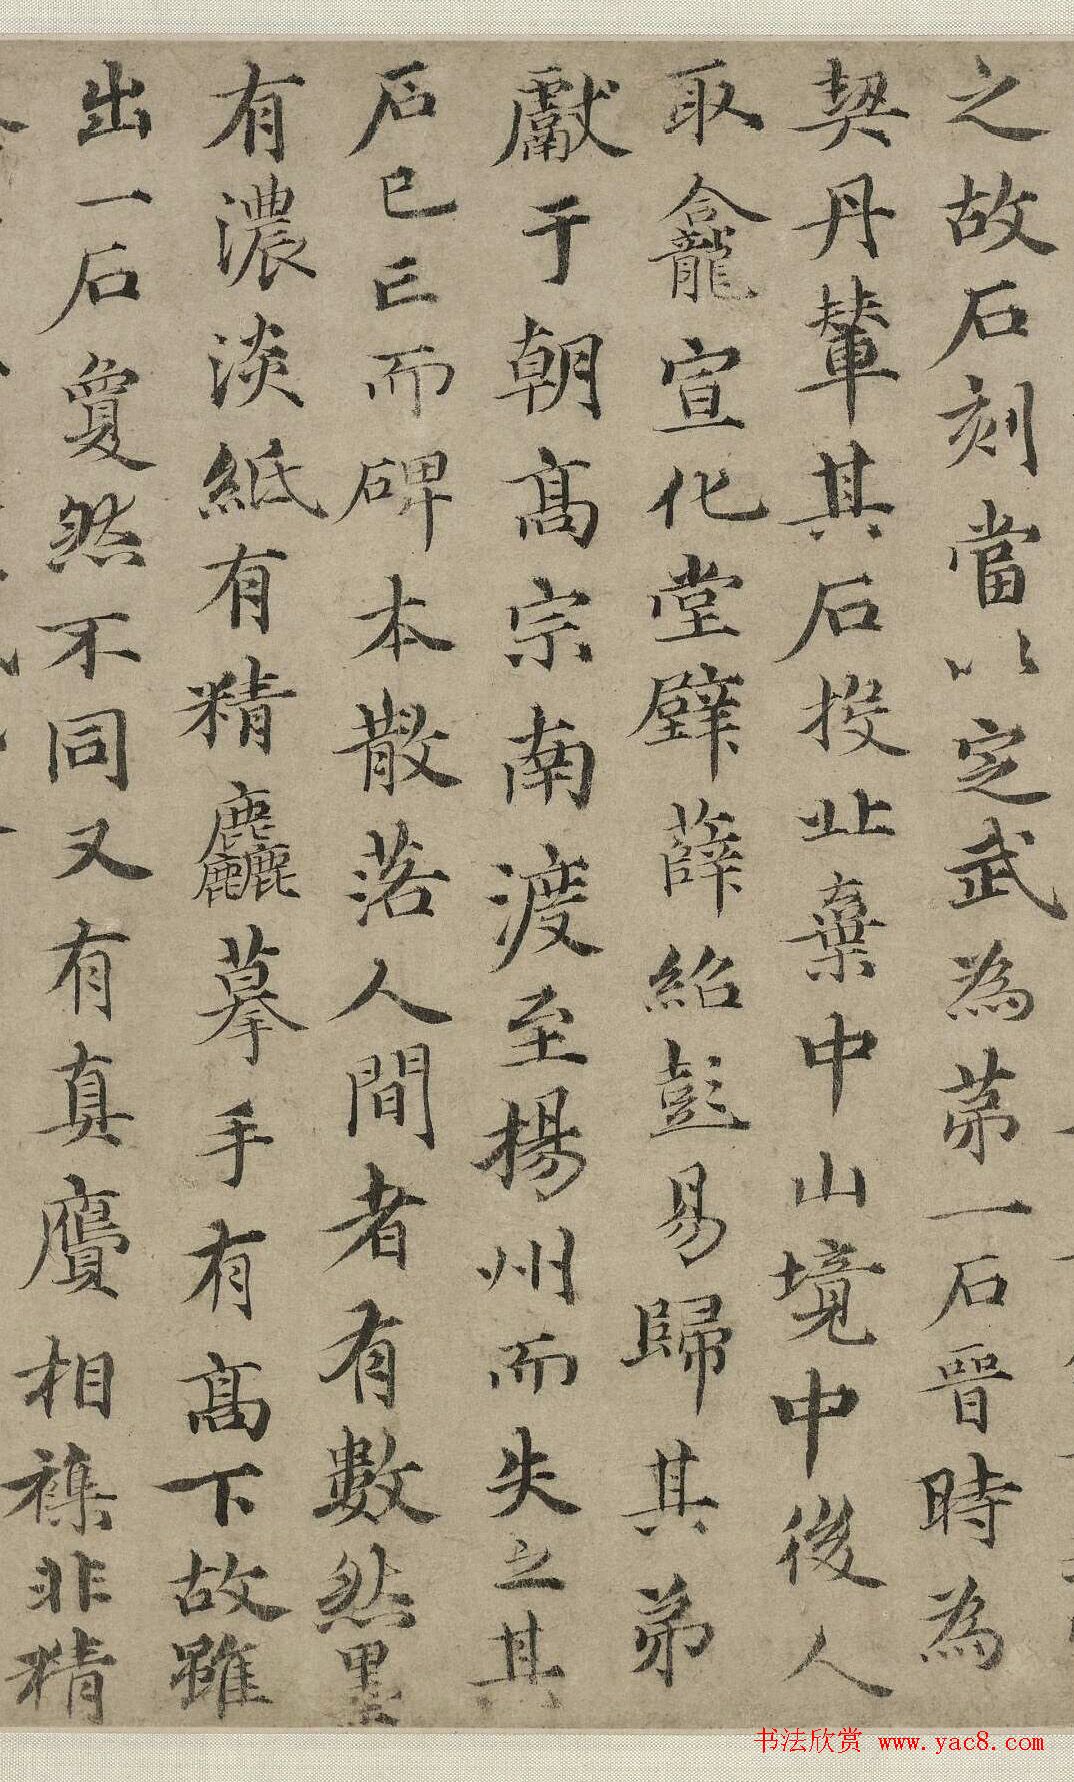 之故石刻當以定武為苐一石晉時為
契丹輦其石投止棄中山境中後人
取龕宣化堂壁薛紹彭易歸其弟
獻于朝高宗南渡至揚州而失之其
石已亡而碑本散落人間者有數然墨
有濃淡紙有精麤摹手有高下故雖
出一石敻然不同又有真贗相襍非精
书法欣赏 www.yac8.com